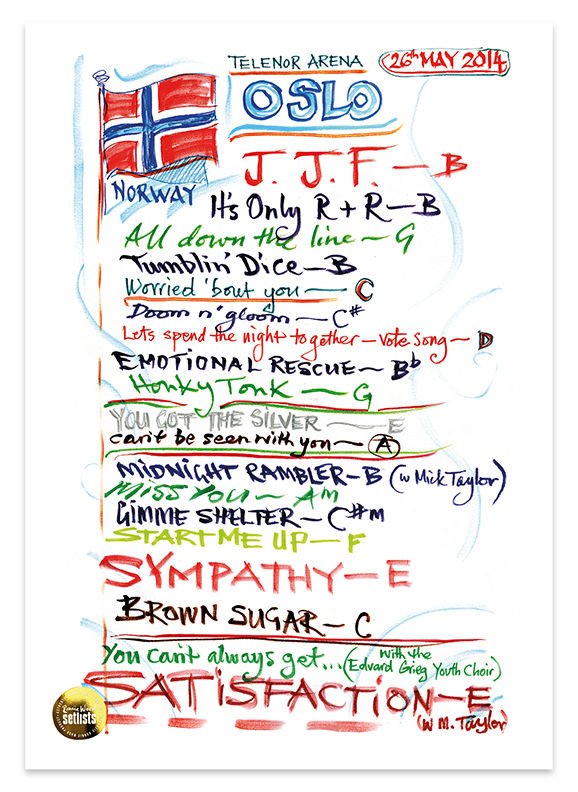 TELENOR ARENA
26th MAY 2014
OSLO
NORWAY
J. J. F. — B
It's Only R + R — B
All down the line — G
Tumblin' Dice — B
Worried 'bout you — C
Doom n' gloom — C#
Lets spend the night together — Vote Song — D
EMOTIONAL RESCUE — Bb
Honky Tonk — G
YOU GOT THE SILVER — E
can't be seen with you — A
MIDNIGHT RAMBLER — B (w Mick Taylor)
MISS YOU — Am
GIMME SHELTER — C#m
START ME UP — F
SYMPATHY — E
BROWN SUGAR — C
You can't always get... (with the Edvard Grieg Youth Choir)
SATISFACTION — E
(w M. Taylor)
Ronnie Wood
setlists